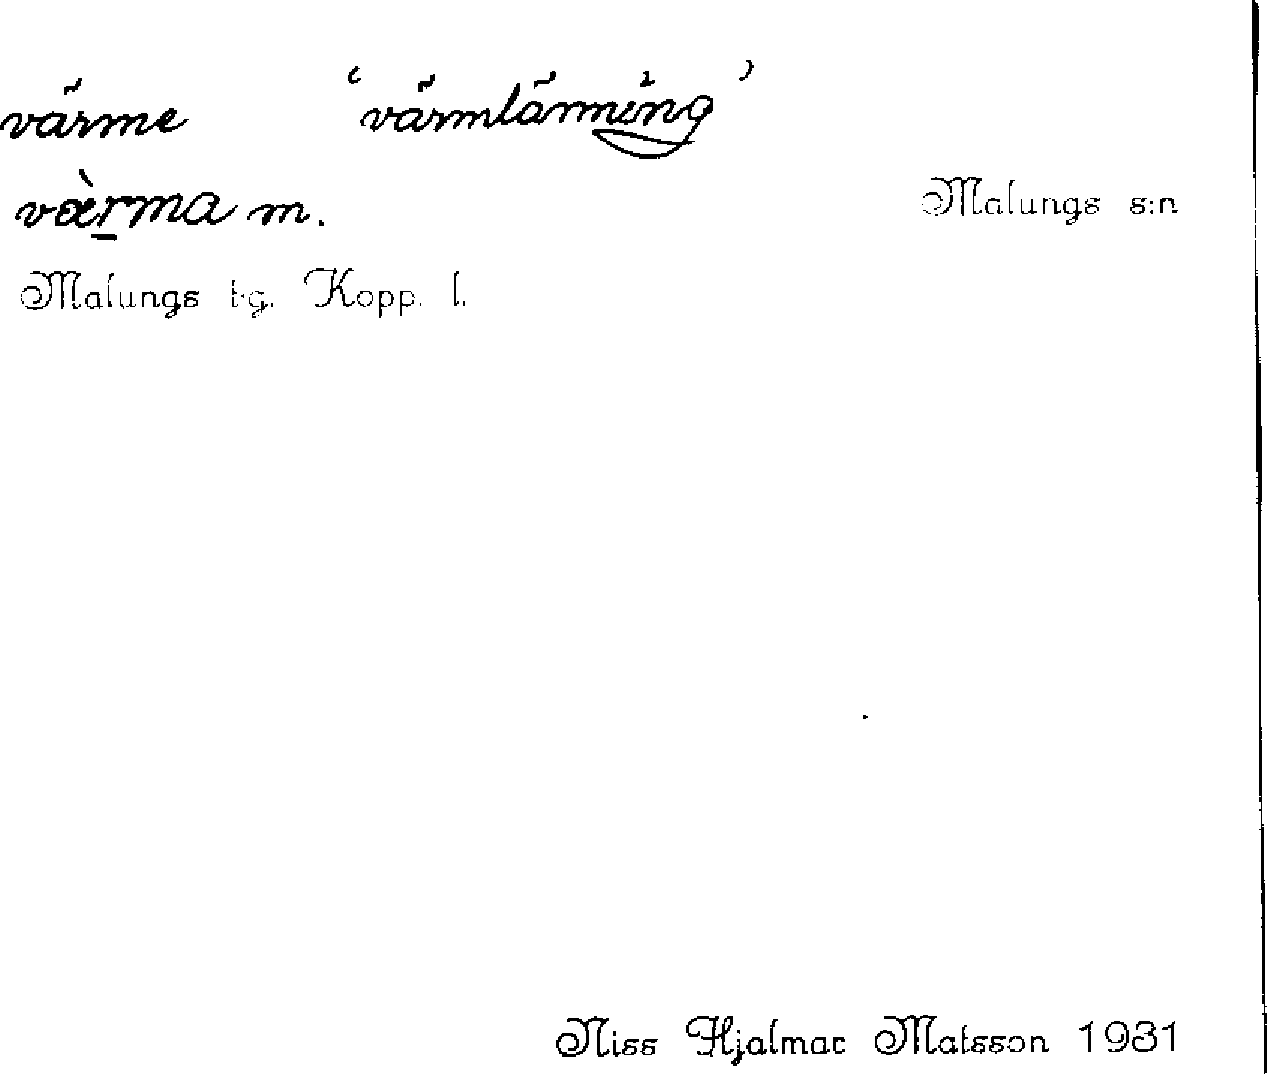 värme 'värmlänning'
væ̀r̲ma m.
Malungs s:n
Malungs tg. Kopp. l.
Niss Hjalmar Matsson 1931